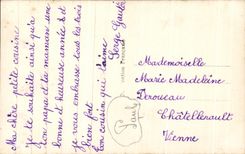 Ma chère petite cousine
Je te souhaite ainsi qu'à
ton papa et ta maman une
bonne et heureuse année et
je vous embrasse tous les trois
bien fort
ton cousin qui t'aime
Serge
Mademoiselle
Marie Madeleine
Deroueau
Châtellerault
Vienne